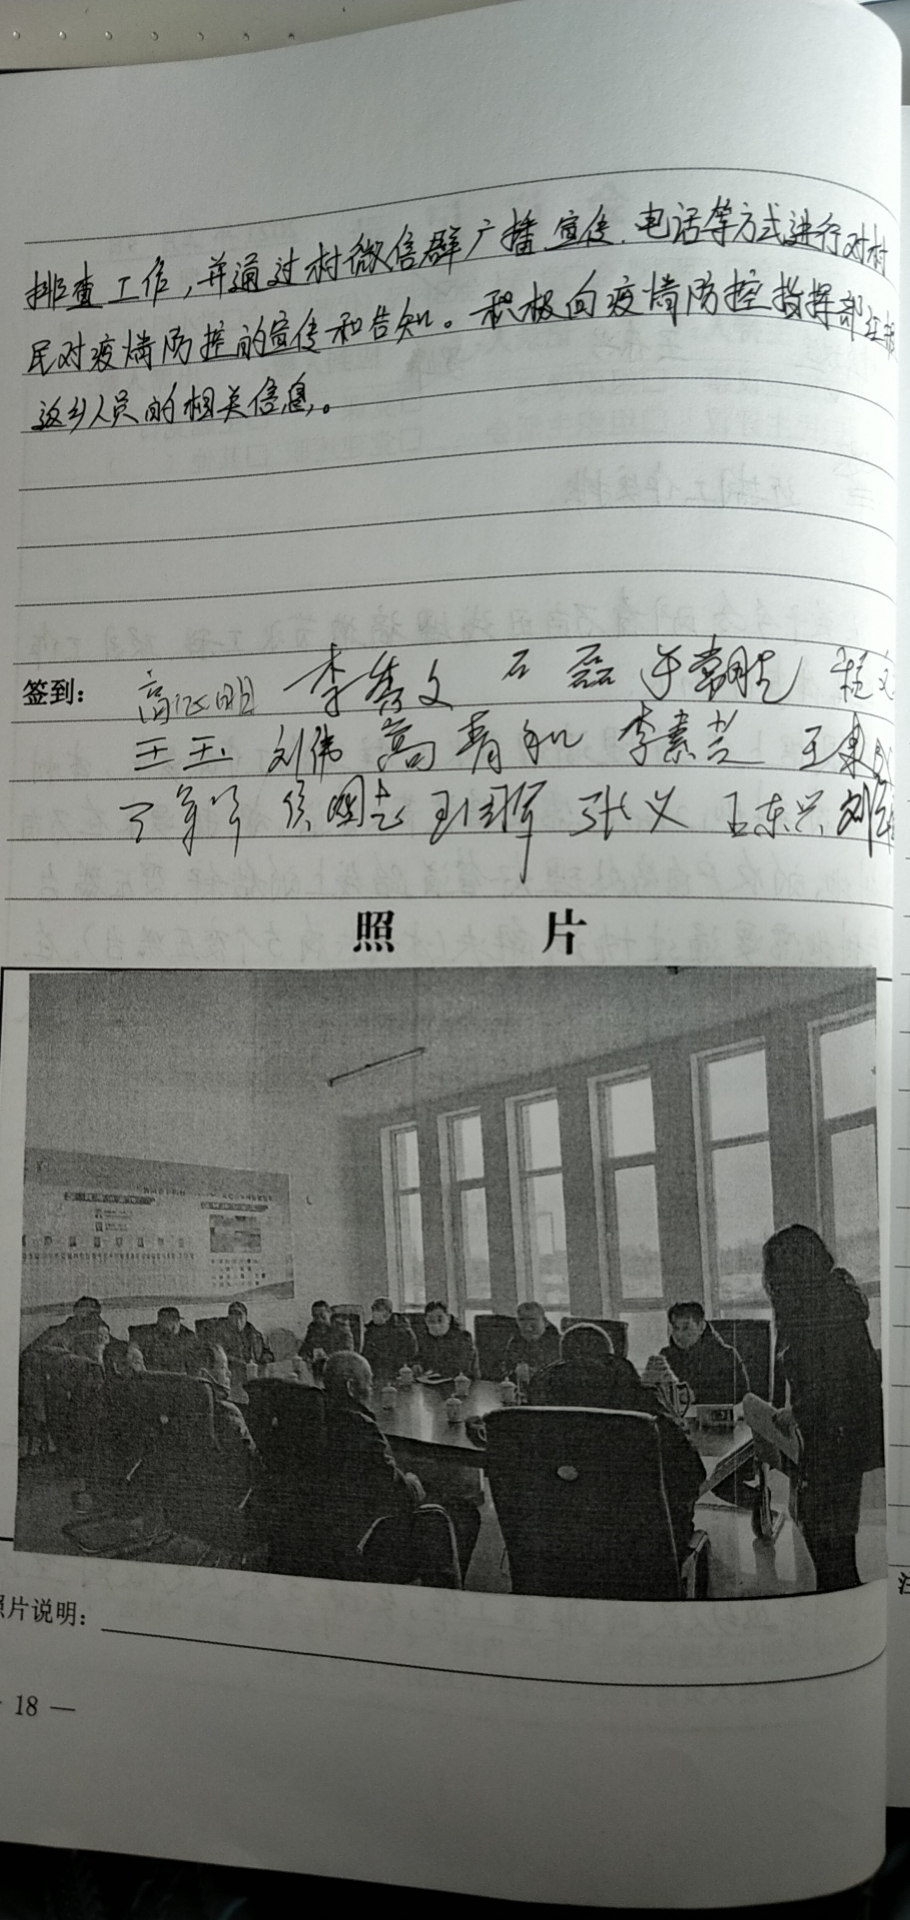 排查工作,并通过村微信群广播.宣传.电话等方式进行对村
民对疫情防控的宣传和告知。积极向疫情防控指挥部汇报
返乡人员的相关信息。
签到: 李秀文 石磊
王玉 刘伟 高青和 李素芝
张义 王东兴
照 片
照片说明:
18 —